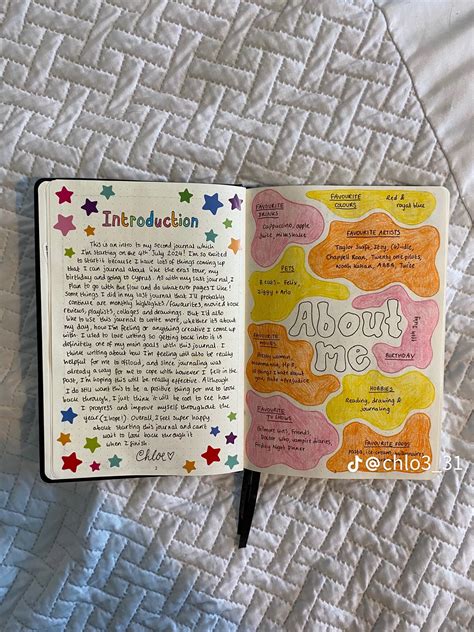 Introduction
This is an intro to my second journal which
I'm starting on the 4th July 2024! I'm so excited
to start it because I have lots of things coming up
that I can journal about like the eras tour, my
birthday and going to Cyprus. As with my last journal, I
plan to go with the flow and do what ever pages I like!
Some things I did in my last journal that I'll probably
continue are monthly highlights/favourites, movie &
book reviews, playlists, collages and drawings. But I'd also
like to use this journal to write more, whether it's about
my day, how I'm feeling or anything creative I come up
with. I used to love writing so getting back into it is
definitely one of my main goals with this journal. I
think writing about how I'm feeling will also be really
helpful for me to offload, and since journaling was
already a way for me to cope with however I felt in the
past, I'm hoping this will be really effective. Although
I do still want this to be a positive thing for me to look
back through, I just think it will be cool to see how
I progress and improve myself throughout the
year (I hope!). Overall, I'm super happy
about starting this journal and can't
wait to look back through it
when I finish
Chloe
FAVOURITE
DRINKS
cappuccino, apple
juice, milkshake
FAVOURITE
COLOURS
Red &
royal blue
FAVOURITE ARTISTS
Taylor Swift,
Chappell Roan, Twenty one pilots,
Noah Kahan, ABBA, Twice
PETS
Felix,
Ziggy + Arlo
About
me
11th July
BIRTHDAY
FAVOURITE
MOVIES
Little women,
10
things I hate about
you, Pride + Prejudice
HOBBIES
Reading, drawing &
journaling
FAVOURITE
TV SHOWS
Gilmore Girls, Friends,
Doctor Who, Vampire diaries,
Friday Night Dinner
FAVOURITE FOODS
Pasta, ice-cream
@chlo3_31